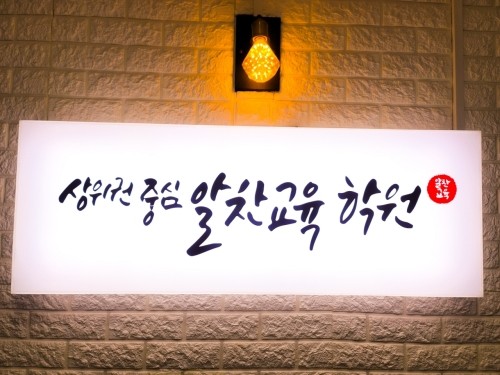 상위권 중심 알찬교육 학원
알찬
교육